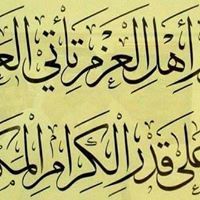 أهل العزم تأتي الع
على قدر الكرام المك